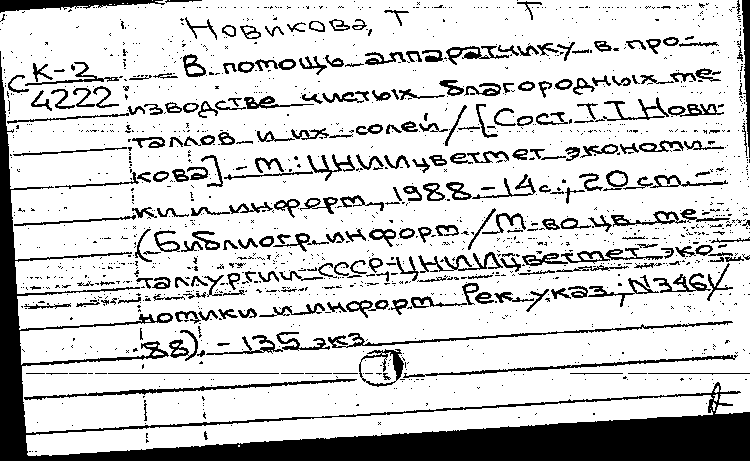 Новикова, Т Т
С К-2
4222
В помощь аппаратчику в про-
изводстве чистых благородных ме-
таллов и их солей / [Сост. Т.Т Нови-
кова]. - М.: ЦНИИцветмет экономи-
ки и информ., 1988. - 14с.; 20 см. -
(Библиогр. информ. / М-во цв. ме-
таллургии СССР, ЦНИИцветмет эко-
номики и информ. Рек. указ.; N346/
88). - 135 экз.